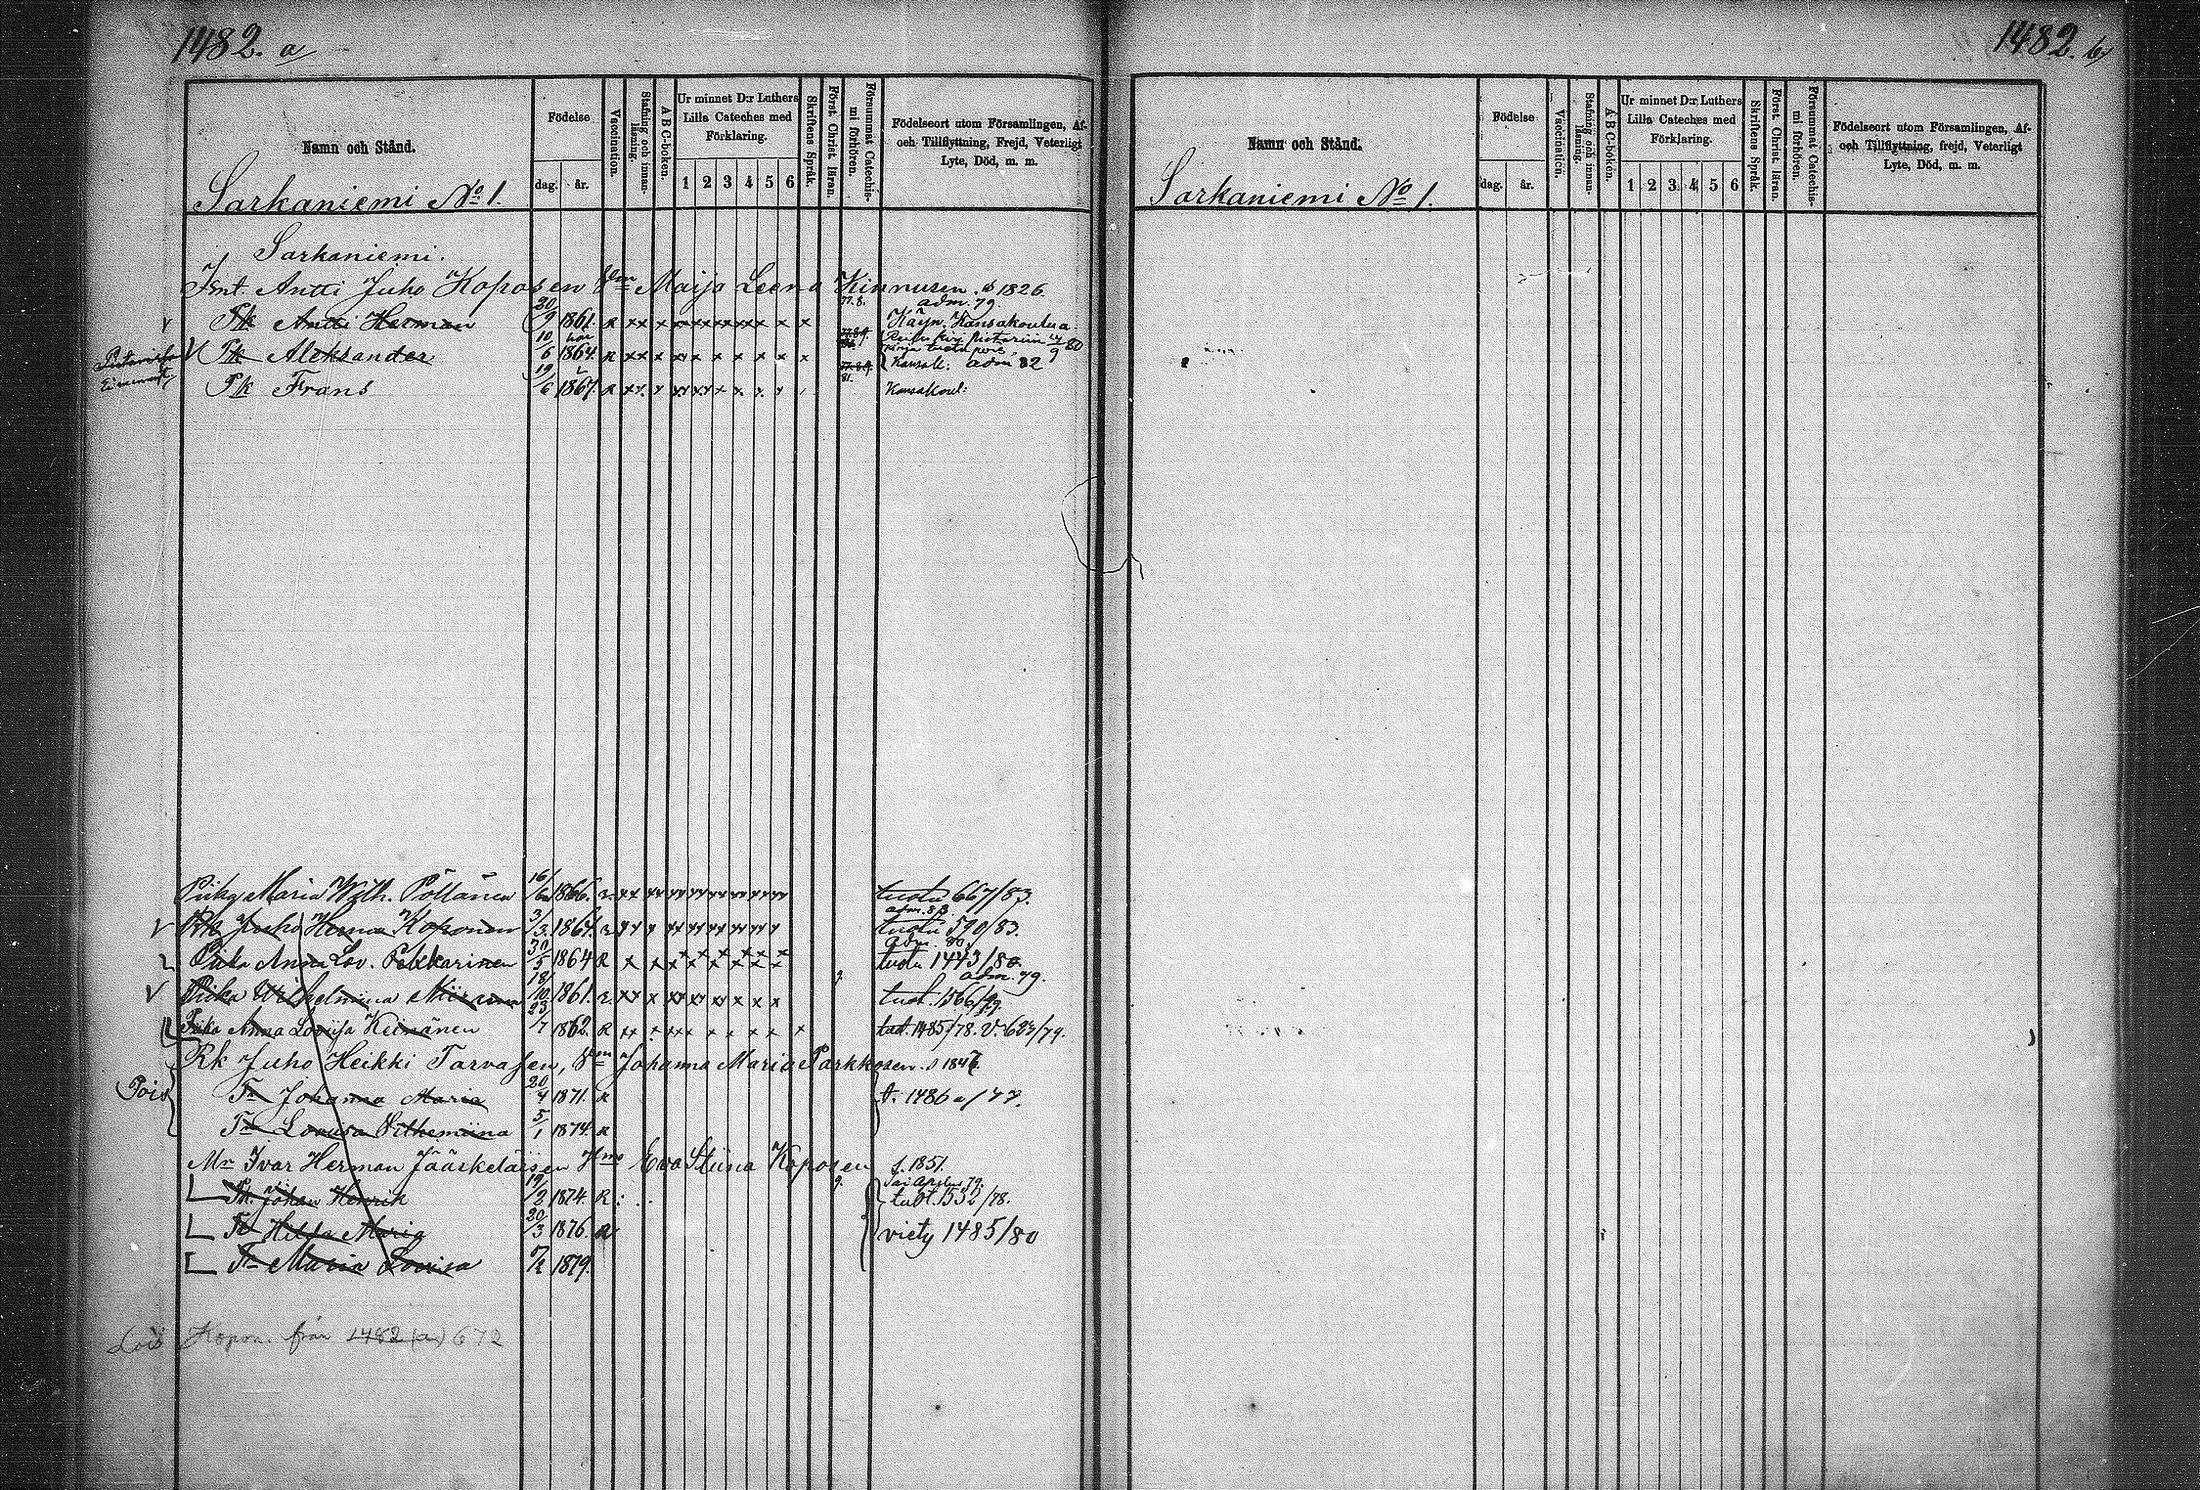 1482. a
1482. b
Namn och Stånd.
Födelse
dag. år.
Vaccination.
Stafning och innanläsning.
A B C-boken.
Ur minnet D:r Luthers Lilla Cateches med Förklaring.
1 2 3 4 5 6
Skriftens Språk.
Först. Christ. läran.
Försummat Catechismi förhören.
Födelseort utom Församlingen, Af- och Tillflyttning, Frejd, Veterligt Lyte, Död, m. m.
Sarkaniemi No 1.
Sarkaniemi.
Antti Juho Koposen Vmn Maija Leena Kinnusen. s 1826.
77.8. adm. 79.
Pk Antti Herman 20/9 1861. R Käyn. Kansakoulua
Pk Aleksander 10/6 1864. R Kansak: adm. 82
Pk Frans 19/6 1867. R Kansakoul:
Piika Maria Wilh. Pöllänen 16/ 1866. tuotu 667/83.
adm. 83
Rk Juho Herman Koponen 3/3 1864. tuotu 590/83.
adm. 80.
Piika Anna Lov. Pekkarinen 30/5 1864 R tuotu 1443/80
adm. 79.
Piika Wilhelmiina 18/10 1861. tuot. 1566/79.
Piika Anna Loviisa Keinänen 23/7 1862. R tuot. 1485/78. V. 623/79.
Rk Juho Heikki Tarvasen, Vmn Johanna Maria Parkkosen. s 1847.
Pois
Tr Johanna Maria 20/4 1871. R t. 1486 a/77.
Tr Lovisa Vilhemiina 5/1 1874. R
Mn Ivar Herman Jääskeläisen Vmo Eva Stiina Koposen s. 1851.
Pk. Johan Henrik 19/2 1874. R. tuot. 1532/78.
Tr Hilda Maria 20/3 1876. R viety 1485/80
Tr Maria Lovisa 7/2 1879.
Kopon. från 1482 (a) 672
Namn och Stånd.
Födelse
dag. år.
Vaccination.
Stafning och innanläsning.
A B C-boken.
Ur minnet D:r Luthers Lilla Cateches med Förklaring.
1 2 3 4 5 6
Skriftens Språk.
Först. Christ. läran.
Försummat Catechismi förhören.
Födelseort utom Församlingen, Af- och Tillflyttning, frejd, Veterligt Lyte, Död, m. m.
Sarkaniemi No 1.